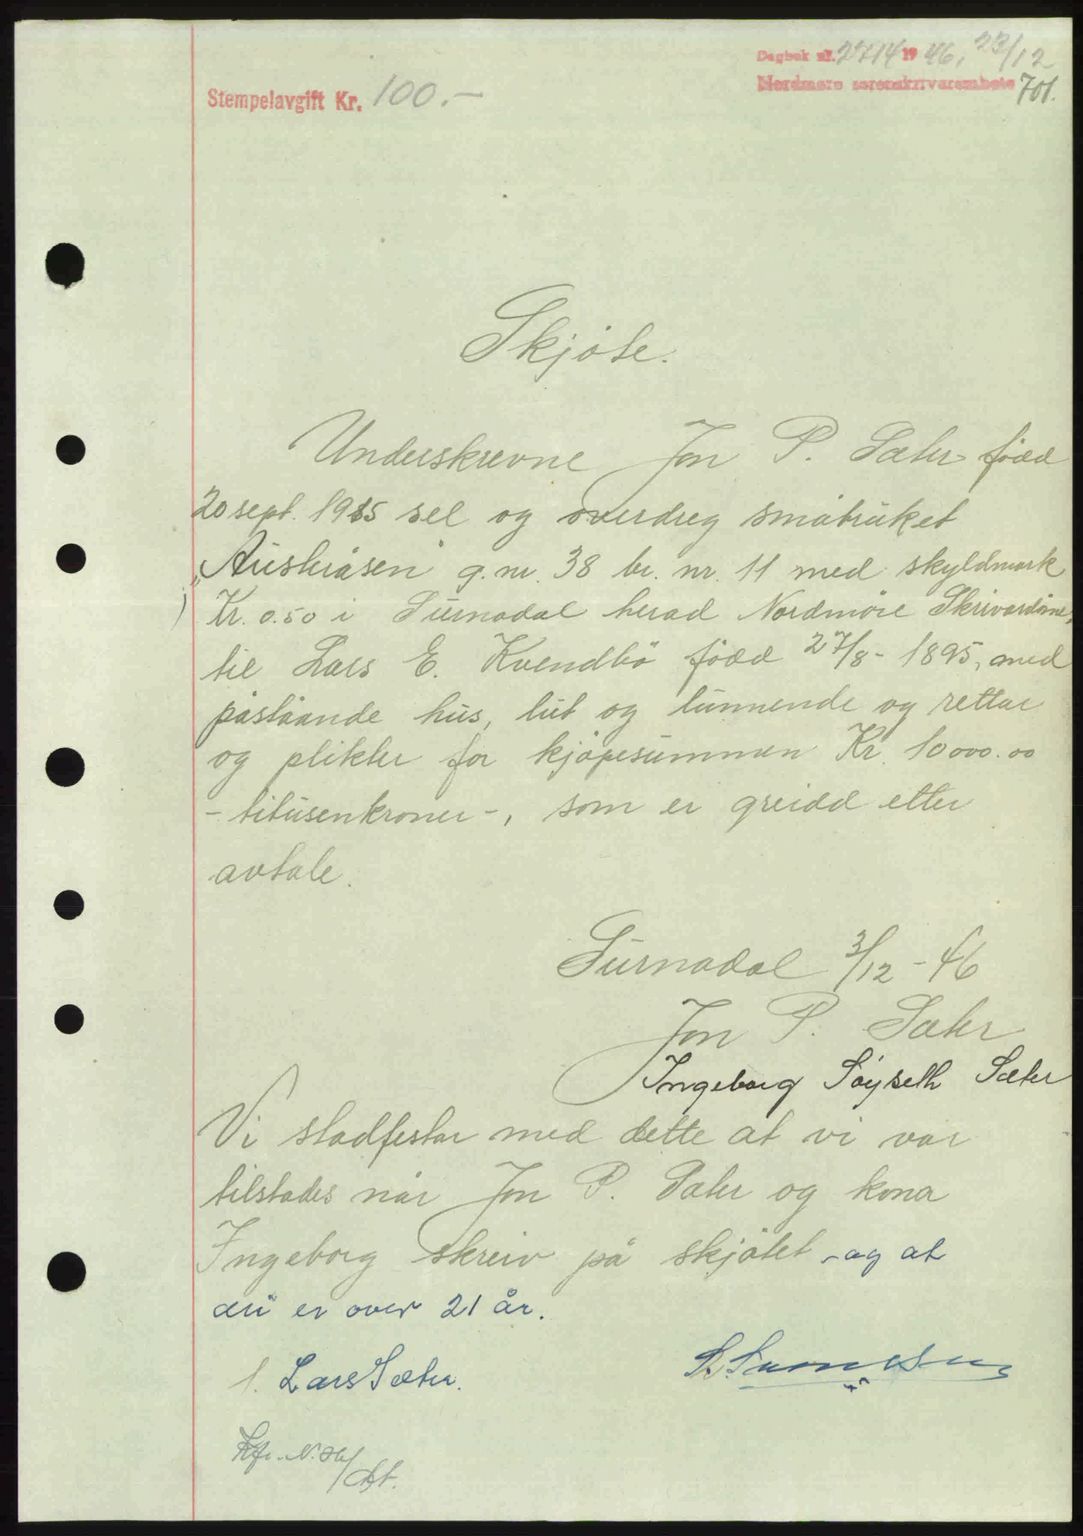 Dagbok nr. 2714 1946, 23/12
Nordmøre sorenskriverembete 701.
Stempelavgift Kr. 100.-
Skjøte.
Underskrevne Jon P. Sæter född
20 sept. 1915 sel og overdreg småbruket
"Austråsen" g.nr. 38 br. nr. 11 med skyldmark
Kr. 0.50 i Surnadal herad Nordmøre
til Lars E. Kvendbö född 27/8- 1895, med
påståande hus, lut og lunnende og rettar
og plikter for kjöpesummen Kr. 10000.00
- titusenkroner -, som er greidd etter
avtale.
Surnadal 3/12 - 46
Jon P. Sæter
Ingeborg Söyseth Sæter
Vi stadfestar med dette at vi var
tilstades når Jon P. Sæter og kona
Ingeborg skreiv på skjötet - og at
dei er over 21 år.
1. Lars Sæter.